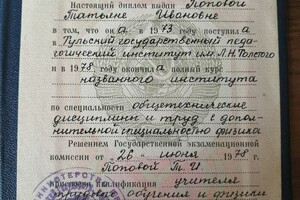 Настоящий диплом выдан Поповой
Татьяне Ивановне
в том, что она в 1973 году поступила
в Тульский государственный педа-
гогический институт им. Л.Н. Толстого
и в 1978 году окончила полный курс
названного института
по специальности общетехнические
дисциплины и труд с допол-
нительной специальностью физика
Решением Государственной экзаменационной
комиссии от "26" июня 1978 г.
Поповой Т. И.
присвоена квалификация учителя
трудового обучения и физики